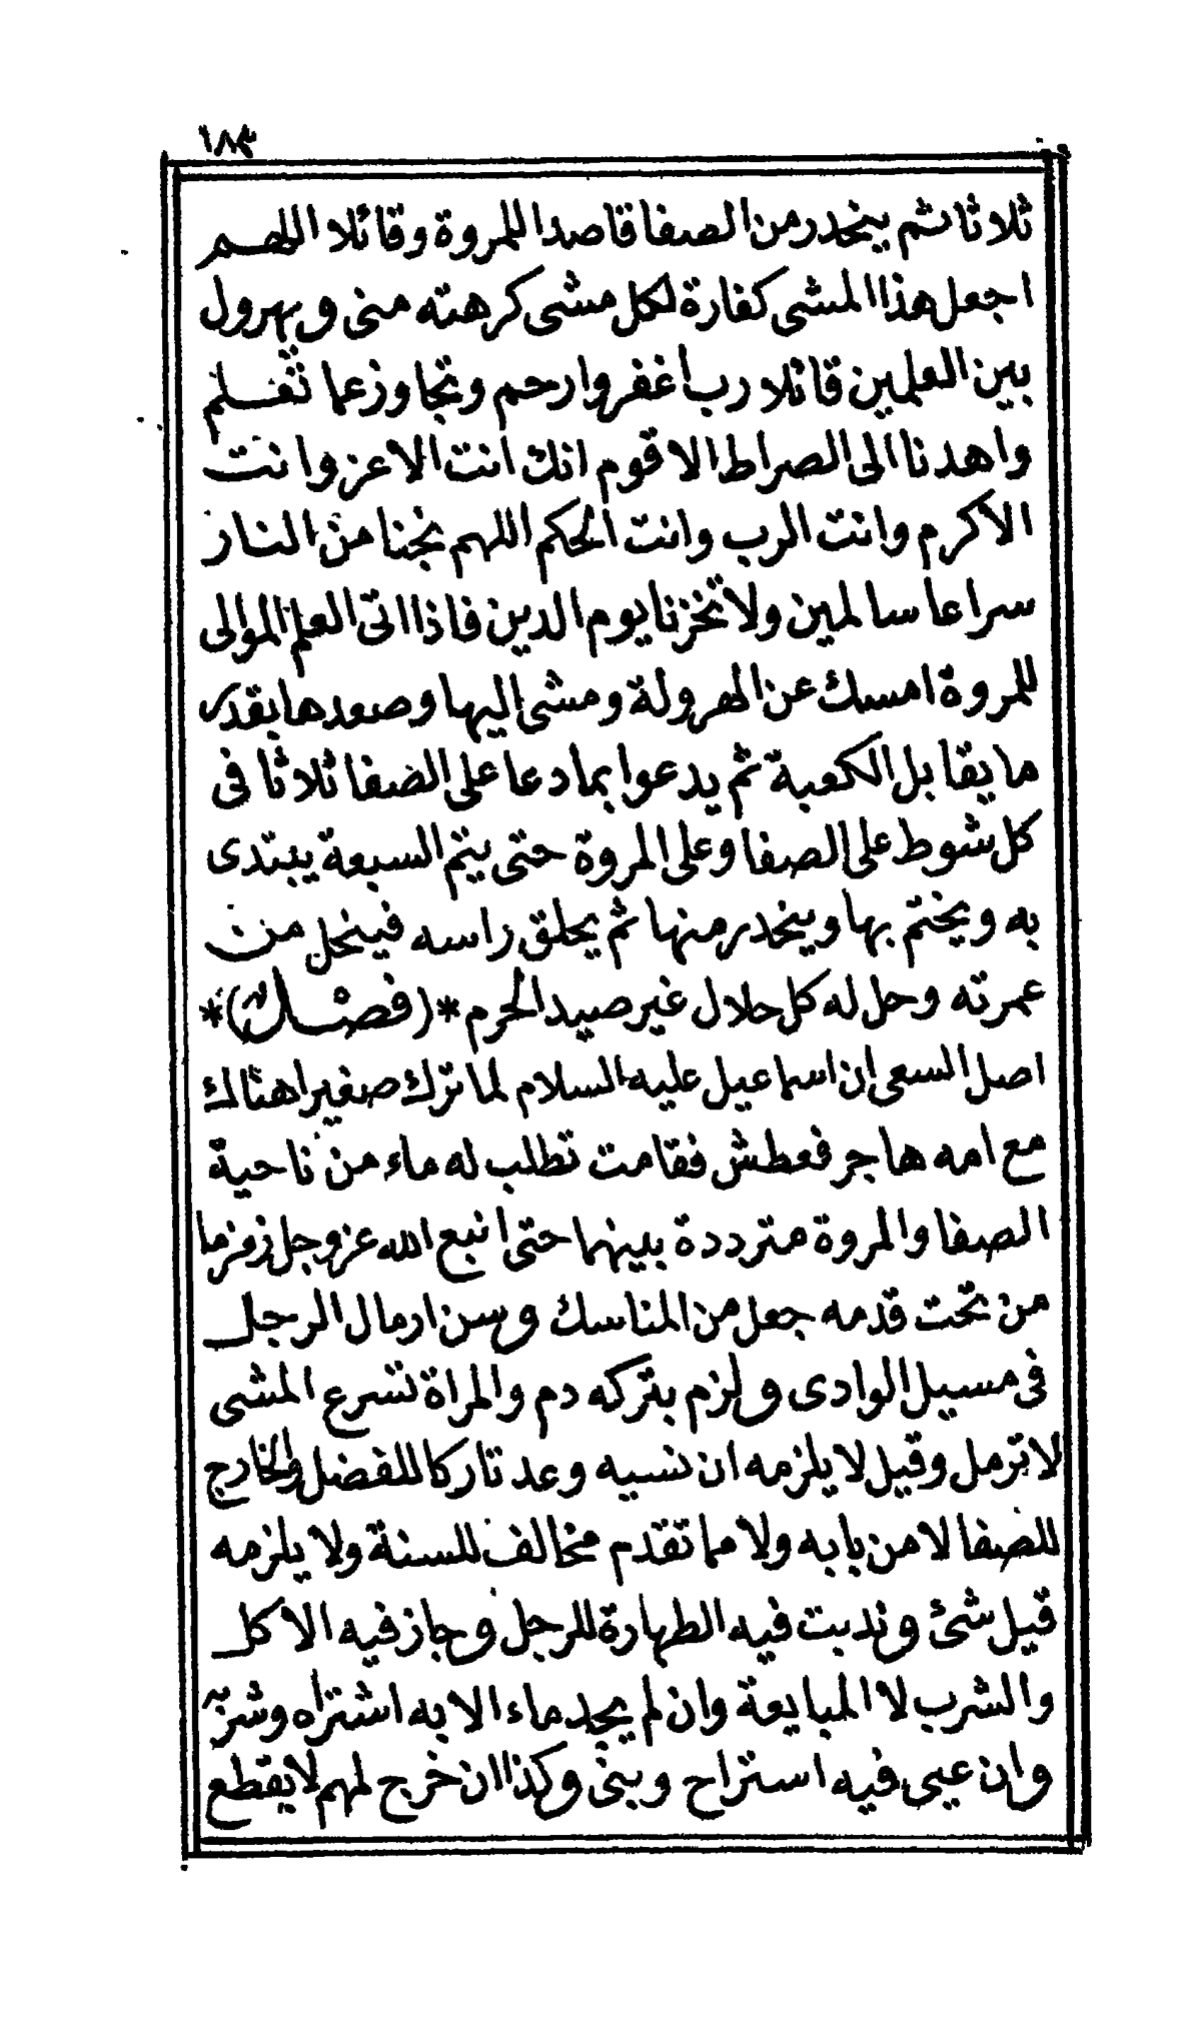 ١٨٣
ثلاثا ثم ينحدر من الصفا قاصدا للمروة وقائلا اللهم
اجعل هذا المشى كفارة لكل مشى كرهته منى ويهرول
بين العلمين قائلا رب اغفر وارحم وتجاوز عما تعلم
واهدنا الى الصراط الاقوم انك انت الاعز وانت
الاكرم وانت الرب وانت الحكم اللهم نجنا من النار
سراعا سالمين ولا تخزنا يوم الدين فاذا اتى العلم الموالى
للمروة امسك عن الهرولة ومشى اليها وصعدها بقدر
ما يقابل الكعبة ثم يدعوا بما دعا على الصفا ثلاثا فى
كل شوط على الصفا وعلى المروة حتى يتم السبعة يبتدى
به ويختم بها وينحدر منها ثم يحلق راسه فينحل من
عمرته وحل له كل حلال غير صيد الحرم *(فصل)*
اصل السعى ان اسماعيل عليه السلام لما ترك صغيرا هنالك
مع امه هاجر فعطش فقامت تطلب له ماء من ناحية
الصفا والمروة مترددة بينهما حتى انبع الله عز وجل زمزما
من تحت قدمه جعل من المناسك وسن ارمال الرجل
فى مسيل الوادى ولزم بتركه دم والمراة تسرع المشى
لا ترمل وقيل لا يلزمه ان نسيه وعد تاركا للفضل والخارج
للصفا لا من بابه ولا مما تقدم مخالف للسنة ولا يلزمه
قيل شئ وندبت فيه الطهارة للرجل وجاز فيه الاكل
والشرب لا المبايعة وان لم يجد ماء الا به اشتراه وشربه
وان عيى فيه استراح وبنى وكذا ان خرج لمهم لا يقطع